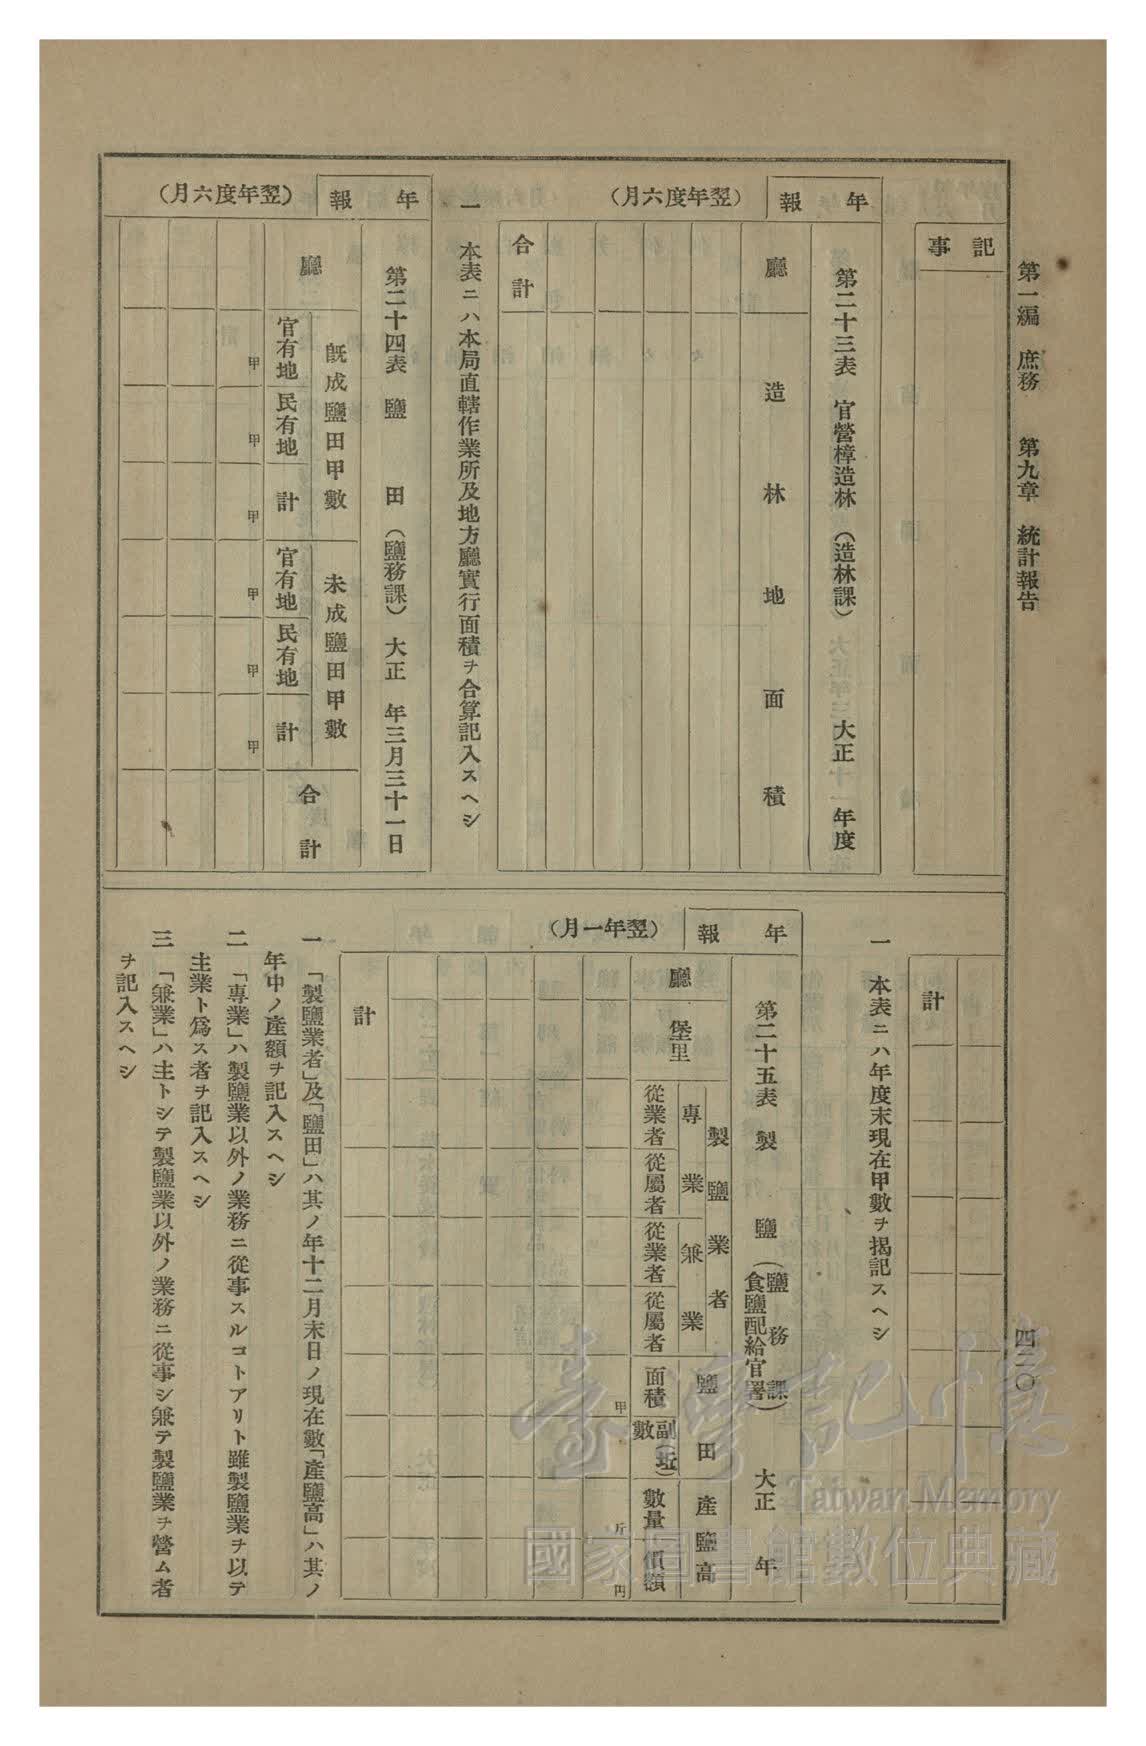 第一編 庶務 第九章 統計報告
四二〇
記事
年報
(翌年度六月)
第二十三表 官營樟造林(造林課) 大正 年度
廳
造林地面積
合計
一 本表ニハ本局直轄作業所及地方廳實行面積ヲ合算記入スヘシ
年報
(翌年度六月)
第二十四表 鹽田(鹽務課) 大正 年三月三十一日
廳
既成鹽田甲數
官有地
民有地
計
未成鹽田甲數
官有地
民有地
計
合計
甲
甲
甲
甲
甲
甲
計
一 本表ニハ年度末現在甲數ヲ揭記スヘシ
年報
(翌年一月)
第二十五表 製鹽(鹽務課 食鹽配給官署) 大正 年
廳
堡里
製鹽業者
專業
從業者
從屬者
兼業
從業者
從屬者
鹽田
面積
副(坵)數
產鹽高
數量
價額
甲
斤
円
計
一 「製鹽業者」及「鹽田」ハ其ノ年十二月末日ノ現在數「產鹽高」ハ其ノ
年中ノ產額ヲ記入スヘシ
二 「專業」ハ製鹽業以外ノ業務ニ從事スルコトアリト雖製鹽業ヲ以テ
主業ト爲ス者ヲ記入スヘシ
三 「兼業」ハ主トシテ製鹽業以外ノ業務ニ從事シ兼テ製鹽業ヲ營ム者
ヲ記入スヘシ
臺灣記憶
Taiwan Memory
國家圖書館數位典藏